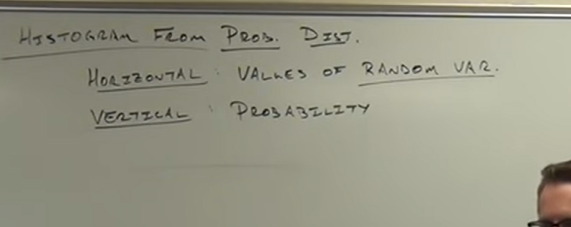 HISTOGRAM FROM PROB. DIST.
HORIZONTAL : VALUES OF RANDOM VAR.
VERTICAL : PROBABILITY